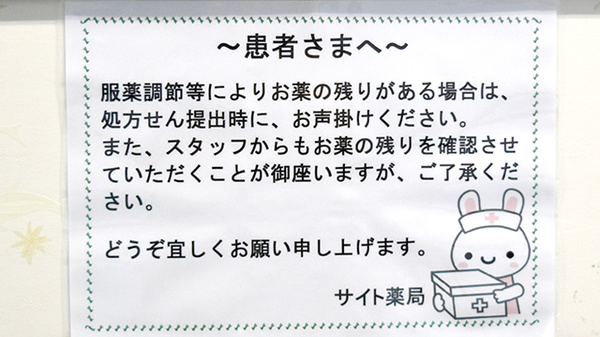 ～患者さまへ～
服薬調節等によりお薬の残りがある場合は、
処方せん提出時に、お声掛けください。
また、スタッフからもお薬の残りを確認させ
ていただくことが御座いますが、ご了承くだ
さい。
どうぞ宜しくお願い申し上げます。
サイト薬局